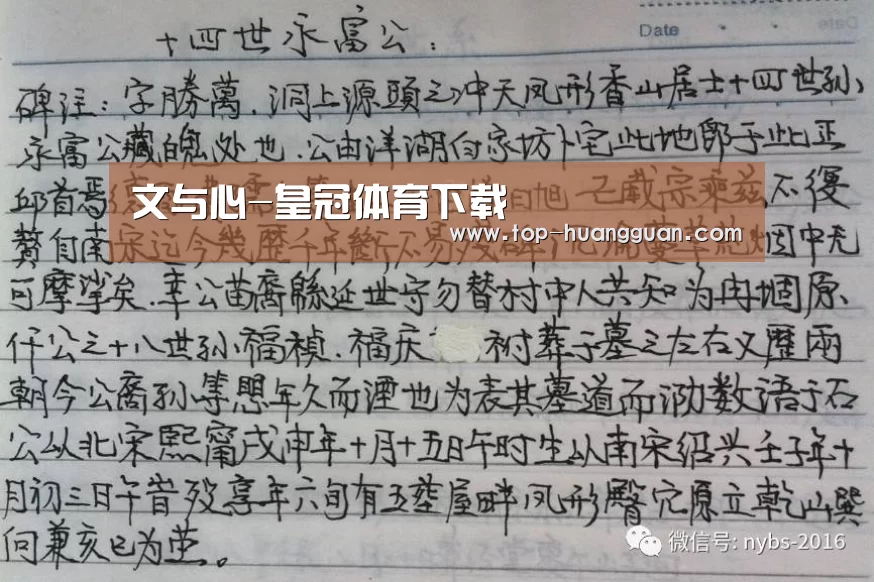 Date
十四世永富公：
碑注：字勝萬．洞上源頭之冲天凤形香山居士十四世孙，
永富公藏魄处也．公由洋湖白家坊卜宅此地郎于此正
邱首焉 旭 已載宗乘兹不復
文与心-皇冠体育下载
www.top-huangguan.com
贅自南宋迄今幾歷千年斷不易 烟中无
可摩挲矣．幸公苗裔緜延世守勿替村中人共知为冉堌原、
仟公之十八世孙福禎．福庆 祔葬于墓之左右又歷兩
朝今公裔孙等思年久而湮也为表其墓道而泐数语于石
公从北宋熙甯戌申年十月十五日午时生从南宋绍兴壬子年十
月初三日午时殁享年六旬有五葬屋畔凤形臀穴原立乾山巽
向兼亥巳为茔。
微信号: nybs-2016